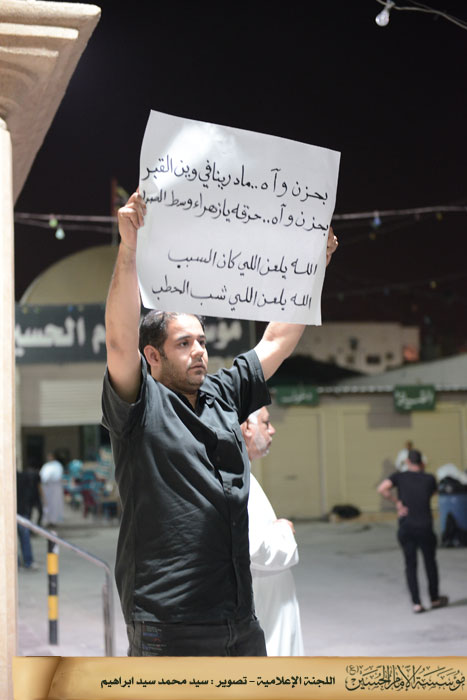 بحزن وآه..مادرينا في وين القبر
بحزن وآه..حرقه يازهراء وسط الصدر
الله يلعن اللي كان السبب
الله يلعن اللي شب الحطب
م الحسين
اللجنة الإعلامية - تصوير : سيد محمد سيد ابراهيم
مؤسسة الإمام الحسين (ع)